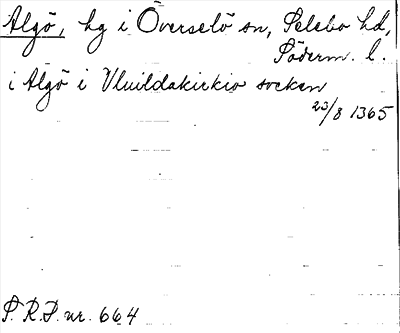 Algö, hg i Överselö sn, Selebo hd,
Söderm. l.
i Algö i Vluildakirkio socken
23/8 1365
S. R. P. nr. 664